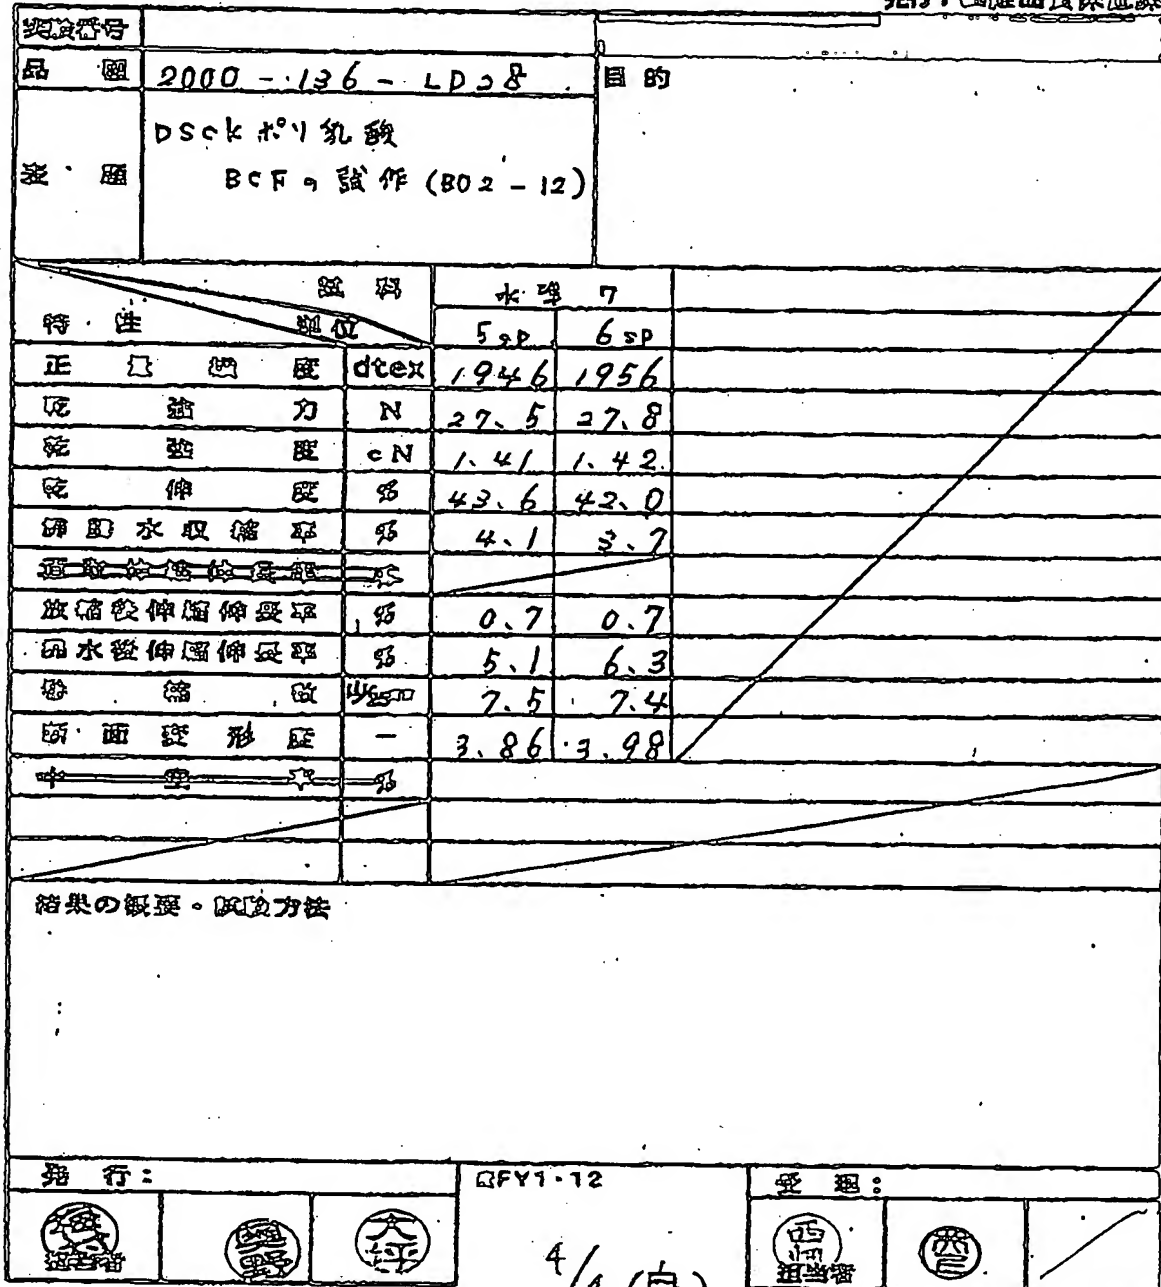 試験番号
品種 2000-136-LD28 目的
DSCKポリ乳酸
表題
BCFの試作(B02-12)
試料 水準 7
特性 単位 5sp 6sp
正量繊度 dtex 1946 1956
乾強力 N 27.5 27.8
乾強度 cN 1.41 1.42
乾伸度 % 43.6 42.0
沸騰水収縮率 % 4.1 3.7
放縮後伸縮伸長率 % 0.7 0.7
沸水後伸縮伸長率 % 5.1 6.3
捲縮数 7.5 7.4
断面変形度 — 3.86 3.98
中空率 %
結果の概要・試験方法
発行: FY1-12 受理:
担当者 奥野 大坪 担当者